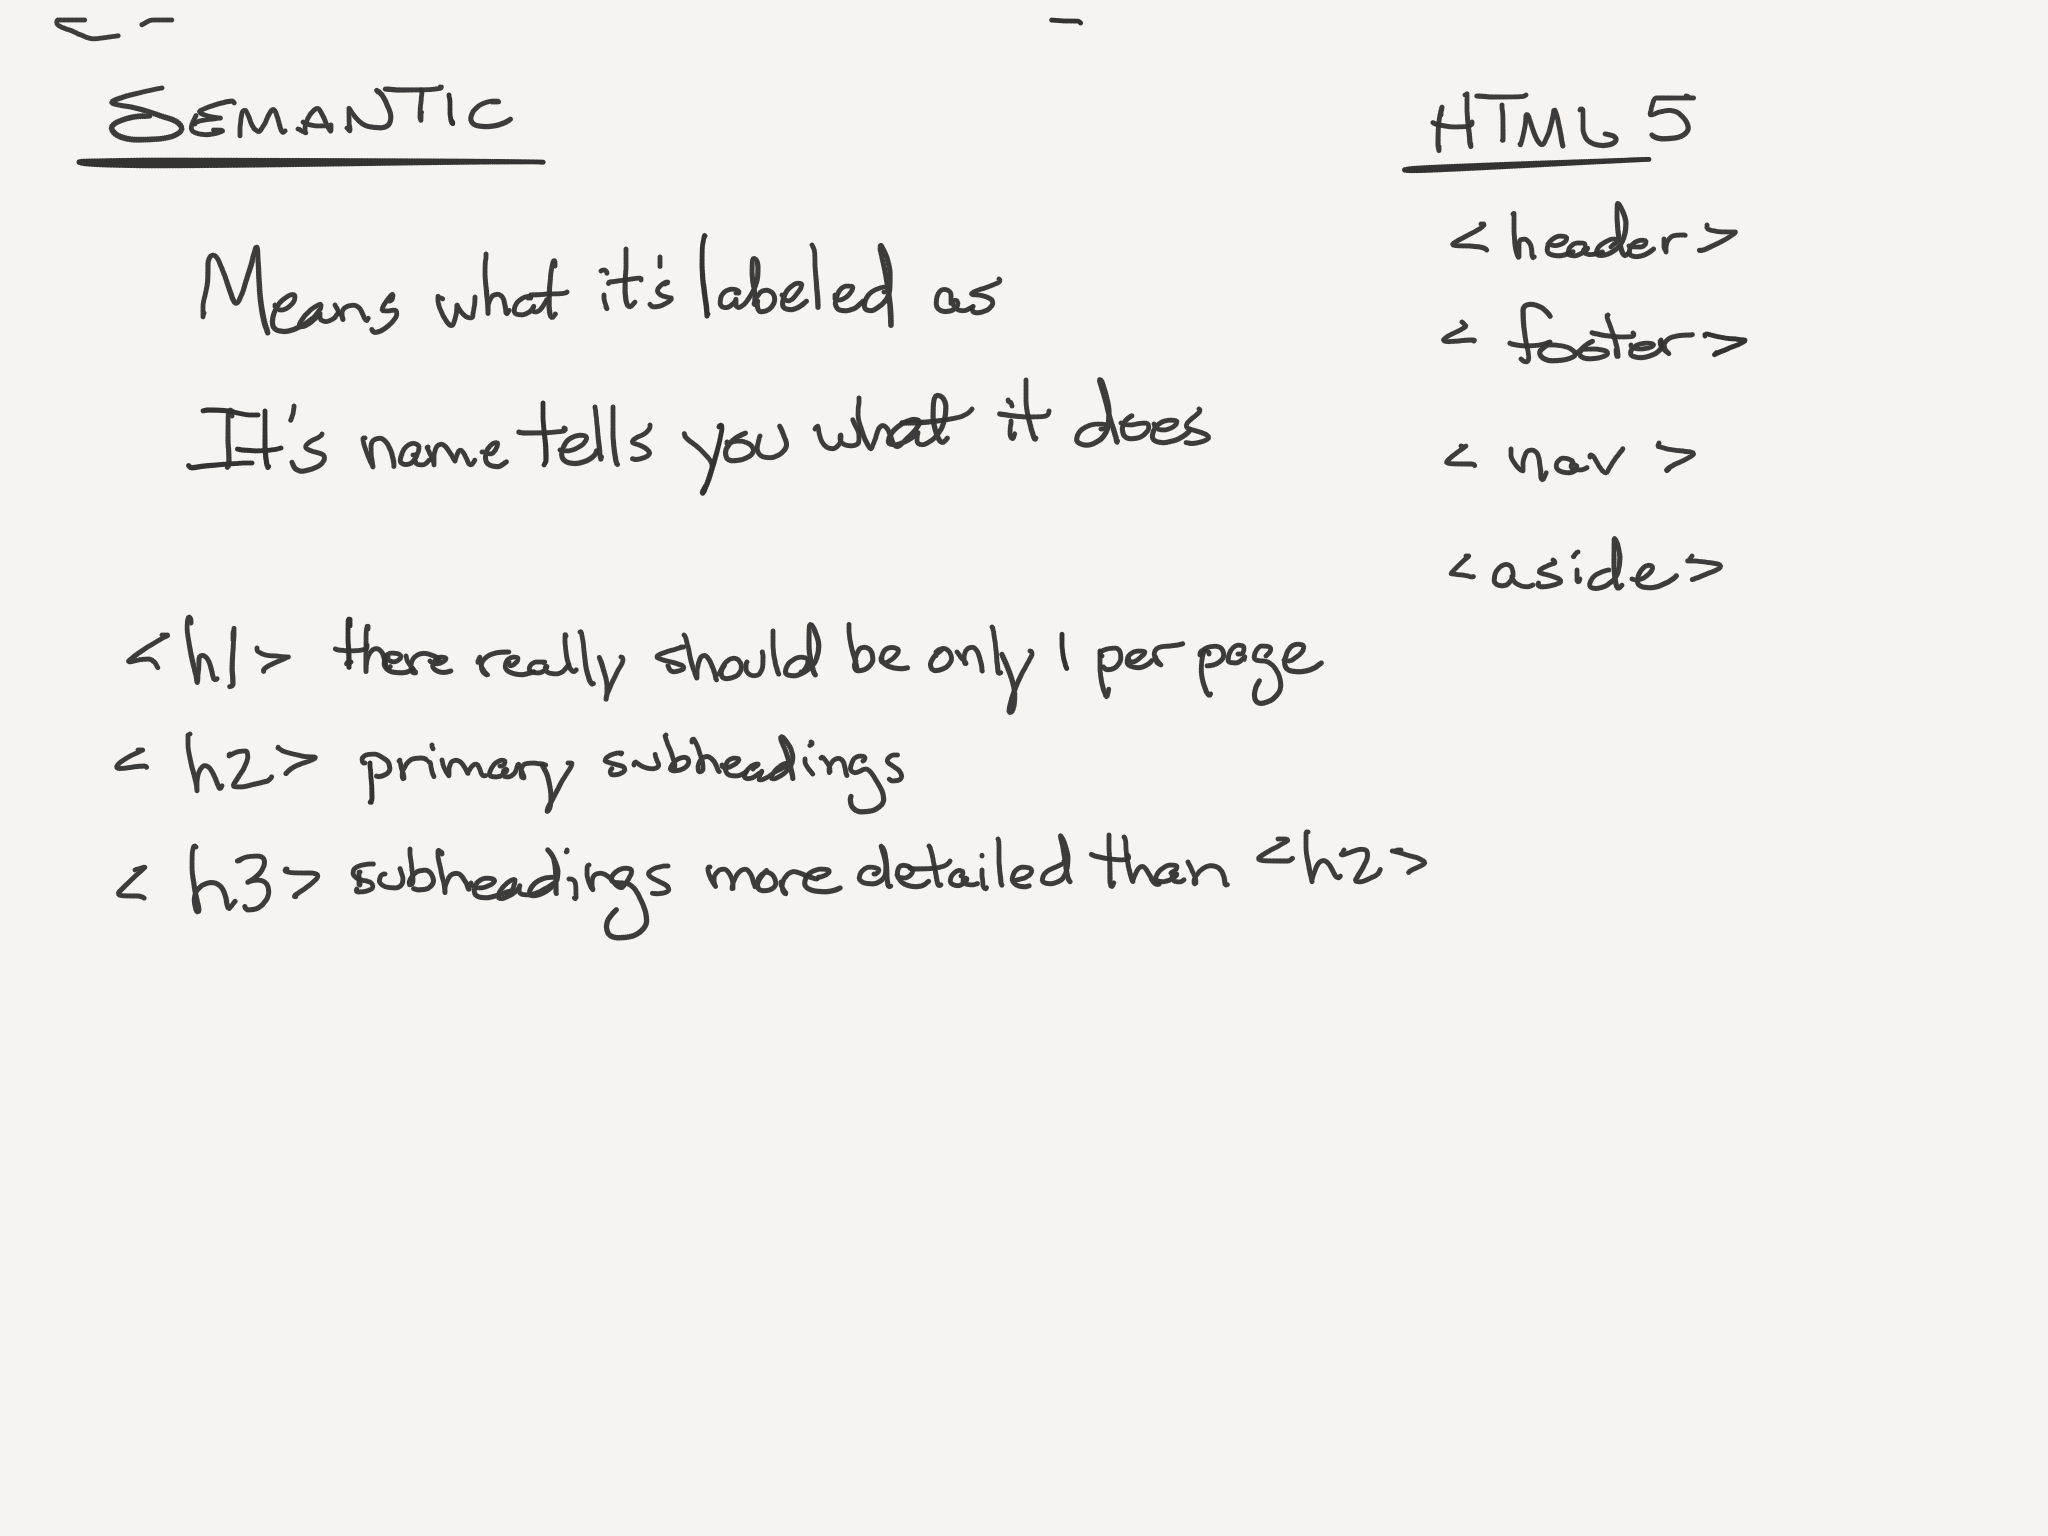 SEMANTIC
Means what it's labeled as
It's name tells you what it does
<h1> there really should be only 1 per page
<h2> primary subheadings
<h3> subheadings more detailed than <h2>
HTML5
<header>
<footer>
<nav>
<aside>